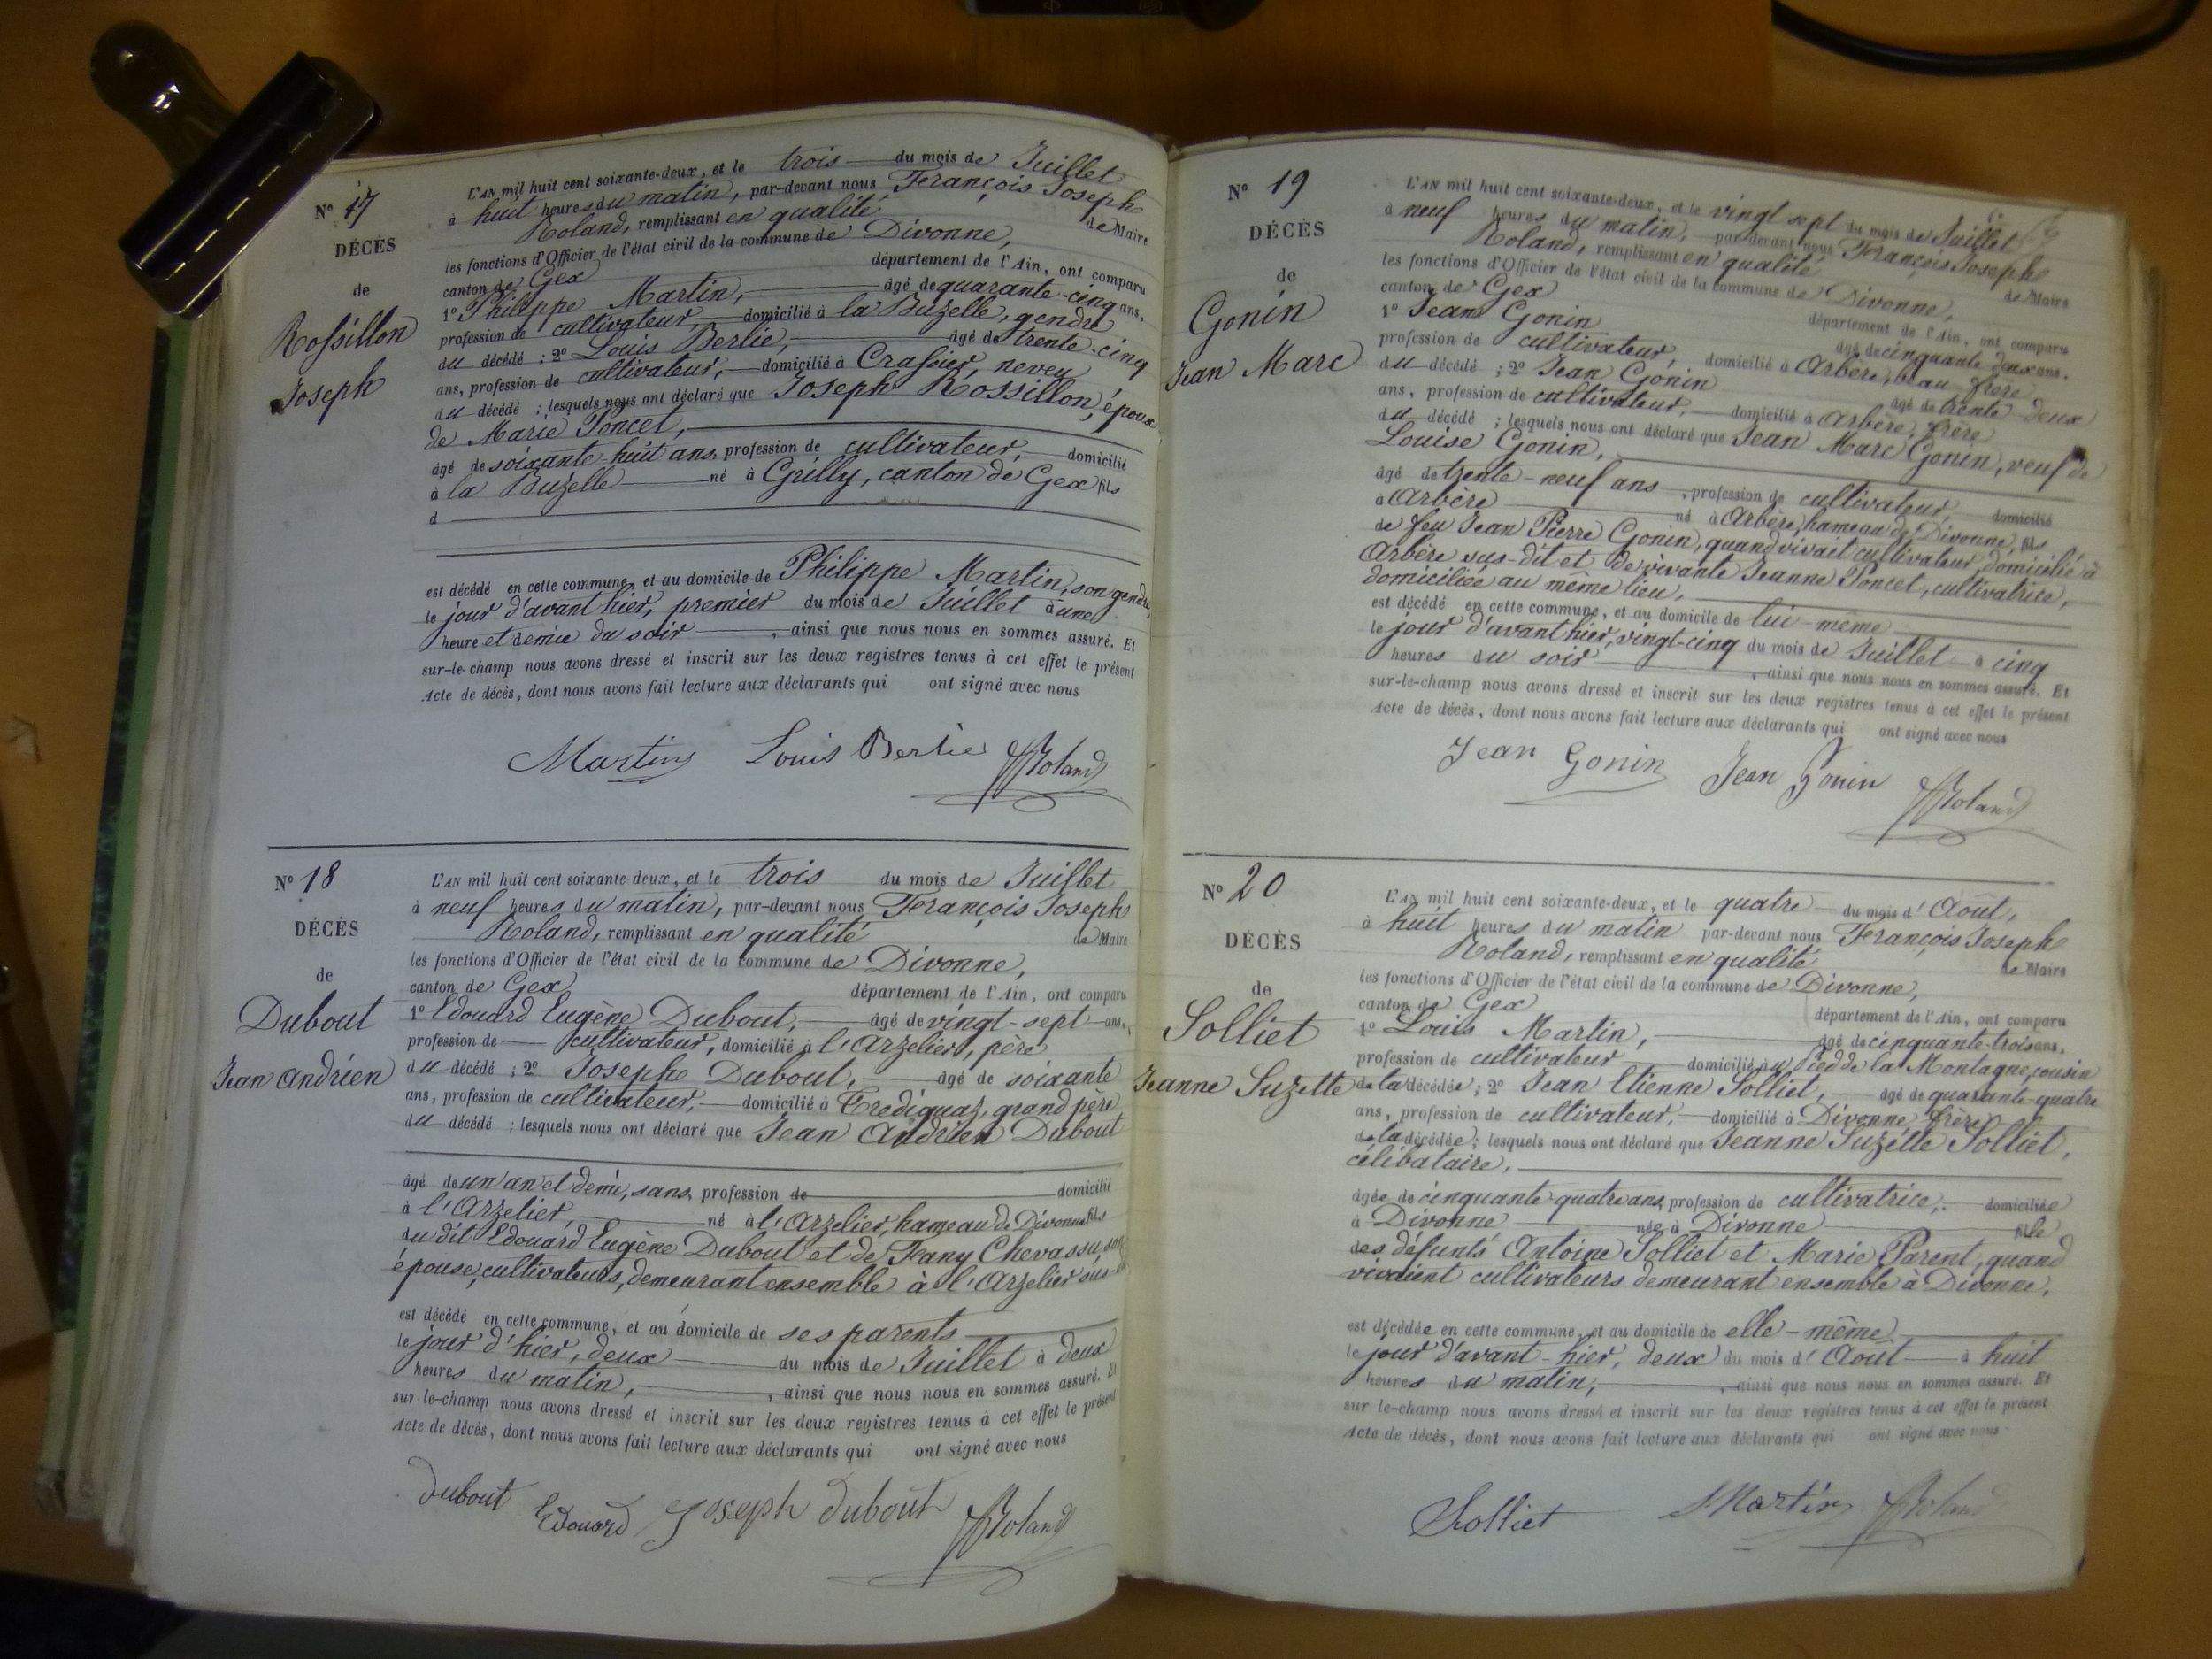 N° 17
DÉCÈS
de
Rossillon
Joseph
L'AN mil huit cent soixante-deux, et le trois du mois de Juillet
à huit heures du matin, par-devant nous François Joseph
Roland, remplissant en qualité de Maire
les fonctions d'Officier de l'état civil de la commune de Divonne,
canton de Gex département de l'Ain, ont comparu
1° Philippe Martin, âgé de quarante-cinq ans,
profession de cultivateur, domicilié à la Buzelle, gendre
du décédé ; 2° Louis Berlie, âgé de trente-cinq
ans, profession de cultivateur, domicilié à Crassier, neveu
du décédé ; lesquels nous ont déclaré que Joseph Rossillon, époux
de Marie Poncet,
âgé de soixante-huit ans, profession de cultivateur, domicilié
à la Buzelle né à Grilly, canton de Gex fils
d
est décédé en cette commune, et au domicile de Philippe Martin, son gendre,
le jour d'avant hier, premier du mois de Juillet à une
heure et demie du soir, ainsi que nous nous en sommes assuré. Et
sur-le-champ nous avons dressé et inscrit sur les deux registres tenus à cet effet le présent
Acte de décès, dont nous avons fait lecture aux déclarants qui ont signé avec nous
Martin Louis Berlie Roland
N° 18
DÉCÈS
de
Dubout
Jean Andrien
L'AN mil huit cent soixante deux, et le trois du mois de Juillet
à neuf heures du matin, par-devant nous François Joseph
Roland, remplissant en qualité de Maire
les fonctions d'Officier de l'état civil de la commune de Divonne,
canton de Gex département de l'Ain, ont comparu
1° Edouard Eugène Dubout, âgé de vingt-sept ans,
profession de cultivateur, domicilié à l'Arzelier, père
du décédé ; 2° Joseph Dubout, âgé de soixante
ans, profession de cultivateur, domicilié à grand père
du décédé ; lesquels nous ont déclaré que Jean Andrien Dubout
âgé de un an et demi, sans profession de domicilié
à l'Arzelier, né à l'Arzelier, hameau de Divonne fils
du dit Edouard Eugène Dubout et de Fany Chevassu, son
épouse, cultivateurs, demeurant ensemble à l'Arzelier sus-dit
est décédé en cette commune, et au domicile de ses parents
le jour d'hier, deux du mois de Juillet à deux
heures du matin, ainsi que nous nous en sommes assuré. Et
sur le-champ nous avons dressé et inscrit sur les deux registres tenus à cet effet le présent
Acte de décès, dont nous avons fait lecture aux déclarants qui ont signé avec nous
Dubout Edouard Joseph Dubout Roland
N° 19
DÉCÈS
de
Gonin
Jean Marc
L'AN mil huit cent soixante-deux, et le vingt sept du mois de Juillet
à neuf heures du matin, par-devant nous François Joseph
Roland, remplissant en qualité de Maire
les fonctions d'Officier de l'état civil de la commune de Divonne,
canton de Gex département de l'Ain, ont comparu
1° Jean Gonin âgé de cinquante deux ans,
profession de cultivateur, domicilié à Arbère, beau frère
du décédé ; 2° Jean Gonin âgé de trente deux
ans, profession de cultivateur, domicilié à Arbère, frère
du décédé ; lesquels nous ont déclaré que Jean Marc Gonin, veuf de
Louise Gonin,
âgé de trente-neuf ans, profession de cultivateur, domicilié
à Arbère né à Arbère, hameau de Divonne, fils
de feu Jean Pierre Gonin, quand vivait cultivateur, domicilié à
Arbère sus-dit et de vivante Jeanne Poncet, cultivatrice,
domiciliée au même lieu,
est décédé en cette commune, et au domicile de lui-même
le jour d'avant hier, vingt-cinq du mois de Juillet à cinq
heures du soir, ainsi que nous nous en sommes assuré. Et
sur-le-champ nous avons dressé et inscrit sur les deux registres tenus à cet effet le présent
Acte de décès, dont nous avons fait lecture aux déclarants qui ont signé avec nous
Jean Gonin Jean Gonin Roland
N° 20
DÉCÈS
de
Solliet
Jeanne Suzette
L'AN mil huit cent soixante-deux, et le quatre du mois d'Août,
à huit heures du matin par-devant nous François Joseph
Roland, remplissant en qualité de Maire
les fonctions d'Officier de l'état civil de la commune de Divonne,
canton de Gex département de l'Ain, ont comparu
1° Louis Martin, âgé de cinquante-trois ans,
profession de cultivateur domicilié au Pied de la Montagne, cousin
de la décédée ; 2° Jean Etienne Solliet, âgé de quarante-quatre
ans, profession de cultivateur, domicilié à Divonne, frère
de la décédée ; lesquels nous ont déclaré que Jeanne Suzette Solliet,
célibataire,
âgée de cinquante quatre ans, profession de cultivatrice, domiciliée
à Divonne née à Divonne fille
des défunts Antoine Solliet et Marie Parent, quand
vivaient cultivateurs demeurant ensemble à Divonne,
est décédée en cette commune, et au domicile de elle-même
le jour d'avant-hier, deux du mois d'Août à huit
heures du matin, ainsi que nous nous en sommes assuré. Et
sur le-champ nous avons dressé et inscrit sur les deux registres tenus à cet effet le présent
Acte de décès, dont nous avons fait lecture aux déclarants qui ont signé avec nous
Solliet Martin Roland